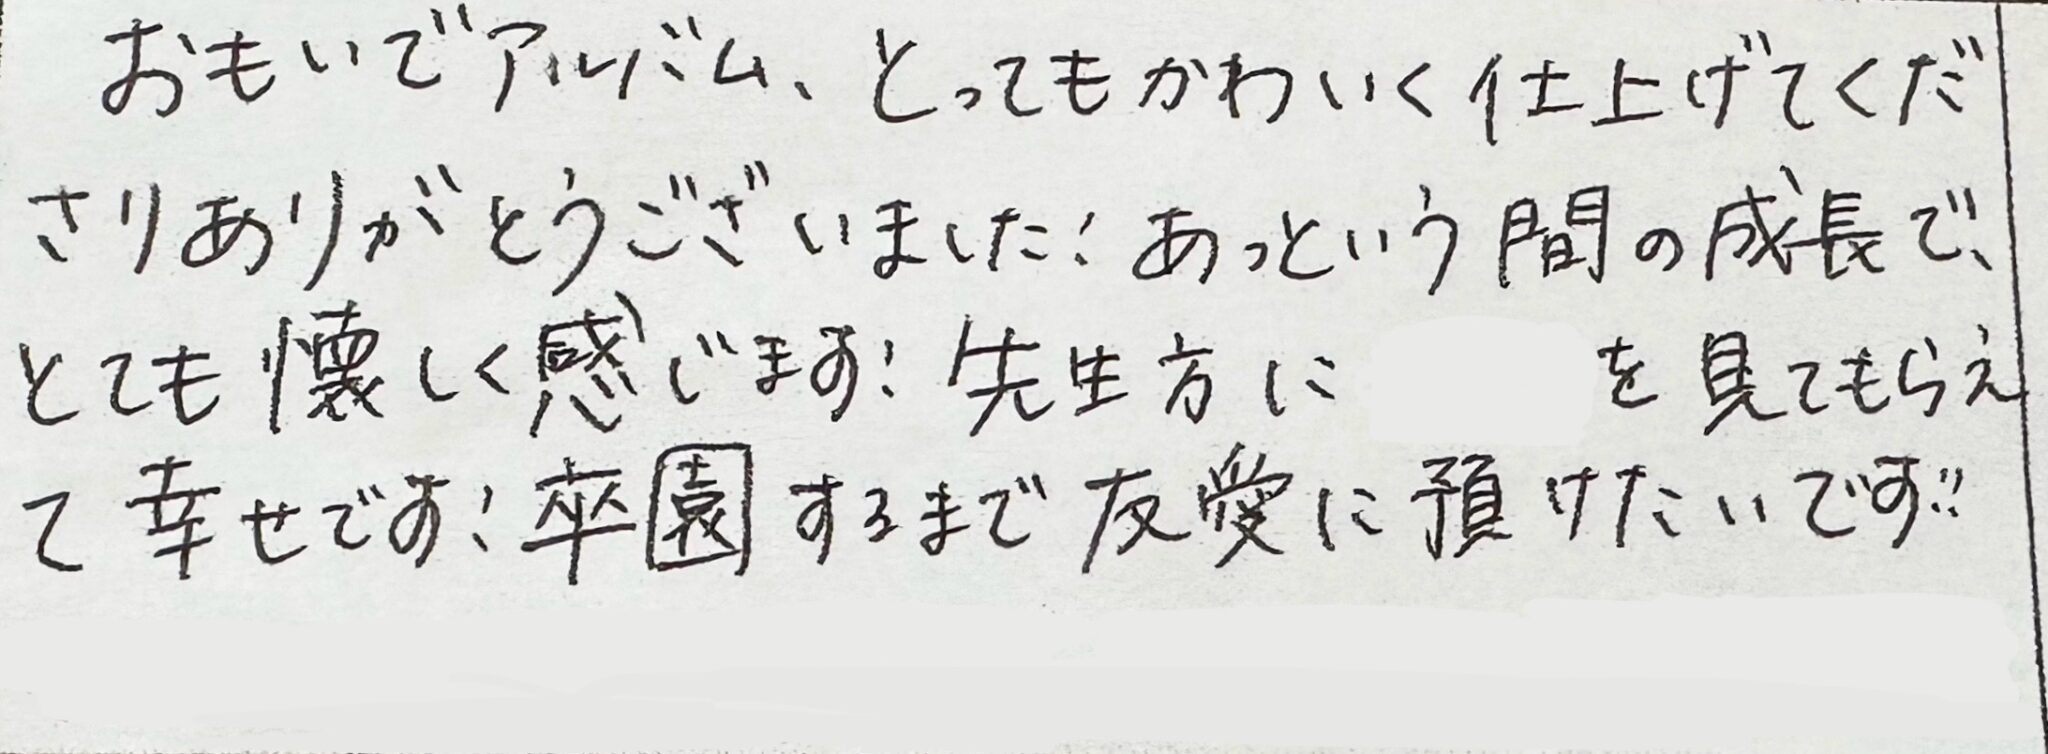 おもいでアルバム、とってもかわいく仕上げてくだ
さりありがとうございました! あっという間の成長で、
とても懐しく感じます! 先生方に を見てもらえ
て幸せです! 卒園するまで友愛に預けたいです!!